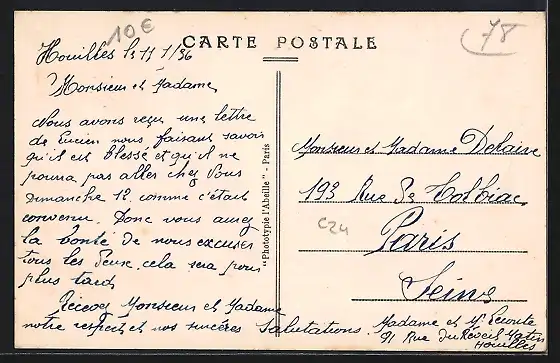 10€
78
CARTE POSTALE
Houilles le 11 1/36
Monsieur et Madame,
Nous avons reçu une lettre
de Lucien nous faisant savoir
qu'il est blessé et qu'il ne
pourra pas aller chez Vous
Dimanche 12. comme c'était
convenu. Donc vous aurez
la bonté de nous excuser
tous les deux, cela sera pour
plus tard,
Recevez Monsieur et Madame
notre respect et nos sincères Salutations.
"Phototypie l'Abeille" - Paris
Monsieur et Madame Delaire
193 Rue De Tolbiac
C24
Paris
Seine
Madame et Mr Lecomte
91 Rue du Réveil Matin
Houilles